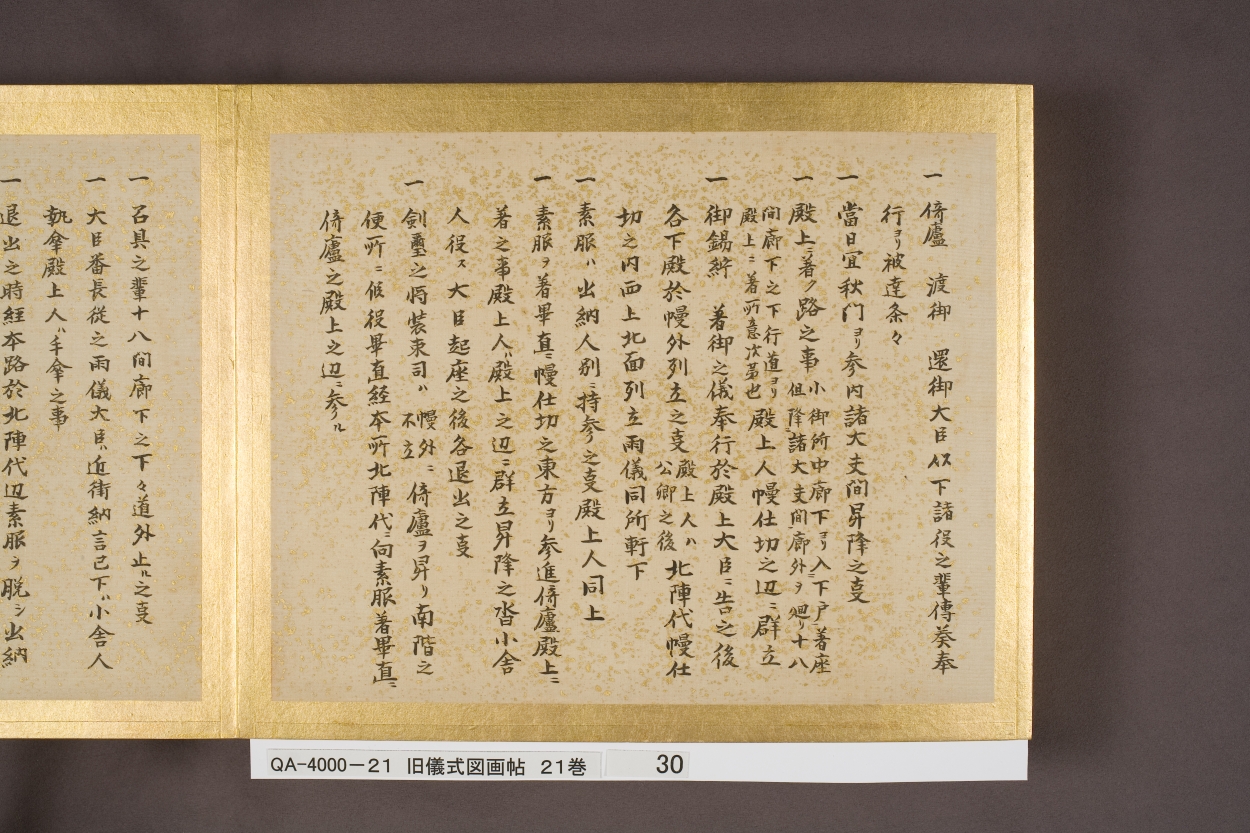 一 倚廬 渡御 還御大臣以下諸役之輩傳葵奉
行ヨリ被達条々
一 當日宜秋门ヨリ参内諸大夫间昇降之㕝
一 殿上ニ著ク路之事 小御所中廊下ヨリ入下戸ニ著座
但降諸大夫间廊外ヲ廻リ十八
间廊下之下行道ヨリ
殿上ニ著所意次第也 殿上人幔仕切之辺ニ群立
一 御錫紵 著御之儀奉行於殿上大臣ニ告之後
各下殿於幔外列立之㕝 殿上人ハ
公卿之後 北陣代幔仕
切之内西上北面列立雨儀同所軒下
一 素服ハ出納人別ニ持参之㕝殿上人同上
一 素服ヲ著畢直ニ幔仕切之東方ヨリ参進倚廬殿上ニ
著之事殿上人ハ殿上之辺ニ群立昇降之沓小舎
人役ス大臣起座之後各退出之㕝
一 剣璽之将装束司ハ 幔外ニ
不立 倚廬ヲ昇リ南階之
便所ニ候役畢直経本所北陣代ニ向素服著畢直ニ
倚廬之殿上之辺ニ参ル
一 召具之輩十八间廊下之下々道外止ル之㕝
一 大臣番長従之雨儀大臣ハ近衛納言已下ハ小舎人
執傘殿上人ハ手傘之事
一 退出之時経本路於北陣代辺素服ヲ脱シ出納
QA-4000-21 旧儀式図画帖 21巻 30